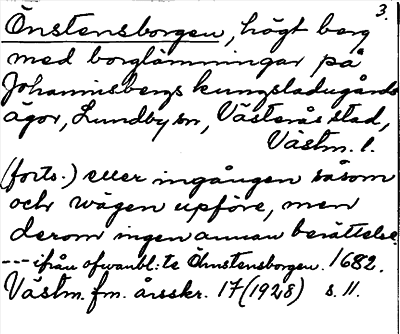 3.
Önstensborgen, högt berg
med borglämningar på
Johannisbergs kungsladugårds
ägor, Lundby sn, Västerås stad,
Västm. l.
(forts.) eller ingången såsom
och wägen upföre, men
derom ingen annan berättelse
--- ifrån ofwanbl:te Önstensborgen. 1682.
Västm. fm. årsskr. 17 (1928) s. 11.